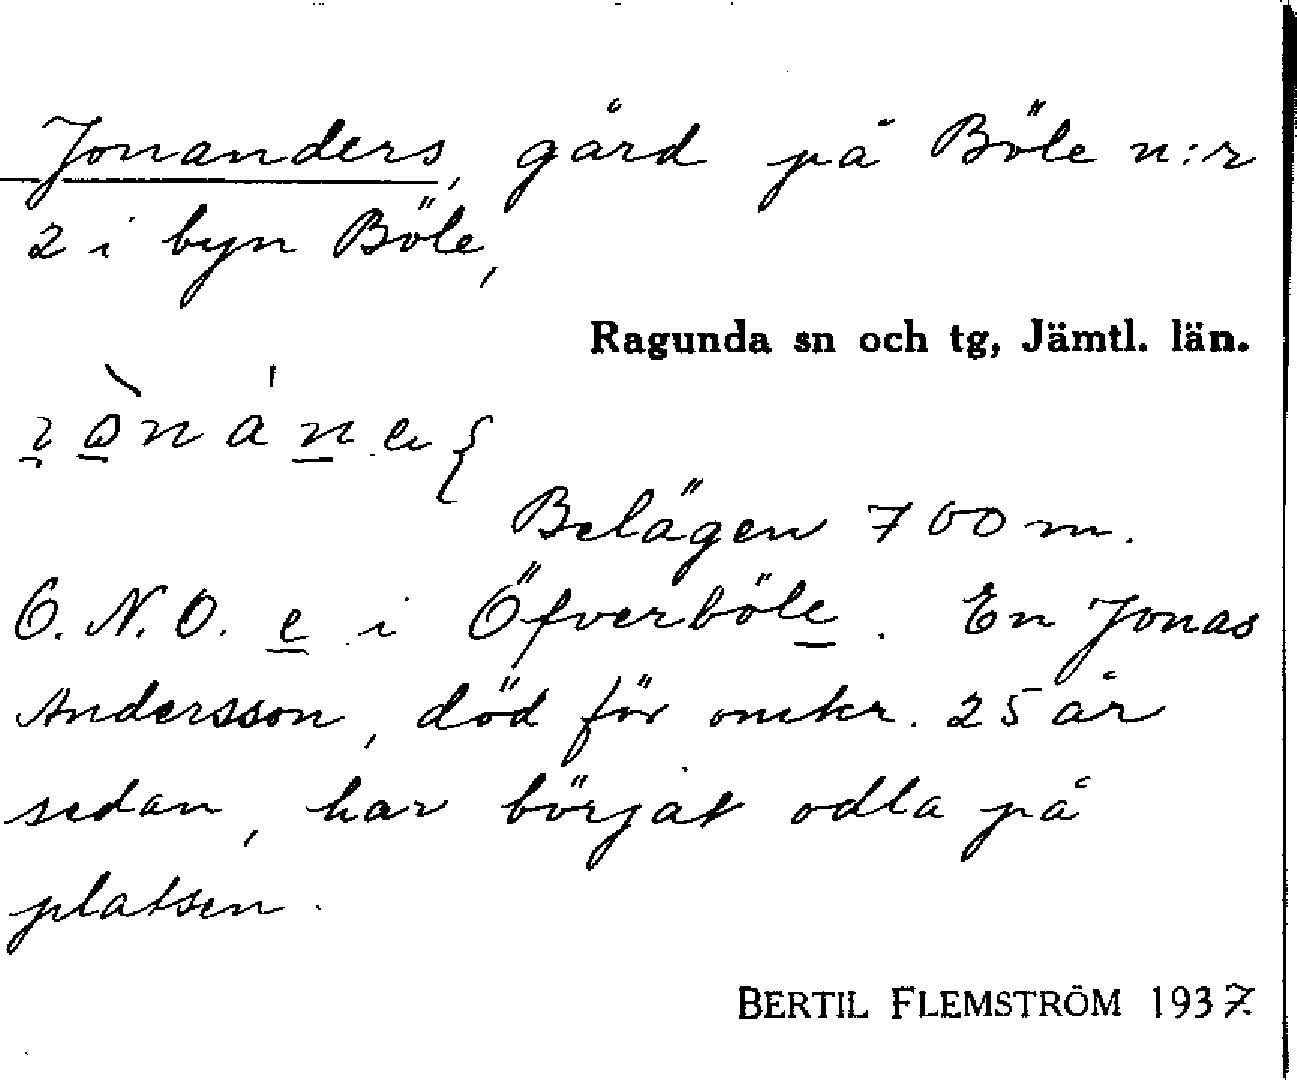 Jonanders, gård på Böle n:r
2 i byn Böle,
Ragunda sn och tg, Jämtl. län.
Belägen 700 m.
O.N.O. e i Öfverböle. En Jonas
Andersson, död för omkr. 25 år
sedan, har börjat odla på
platsen.
BERTIL FLEMSTRÖM 1937.